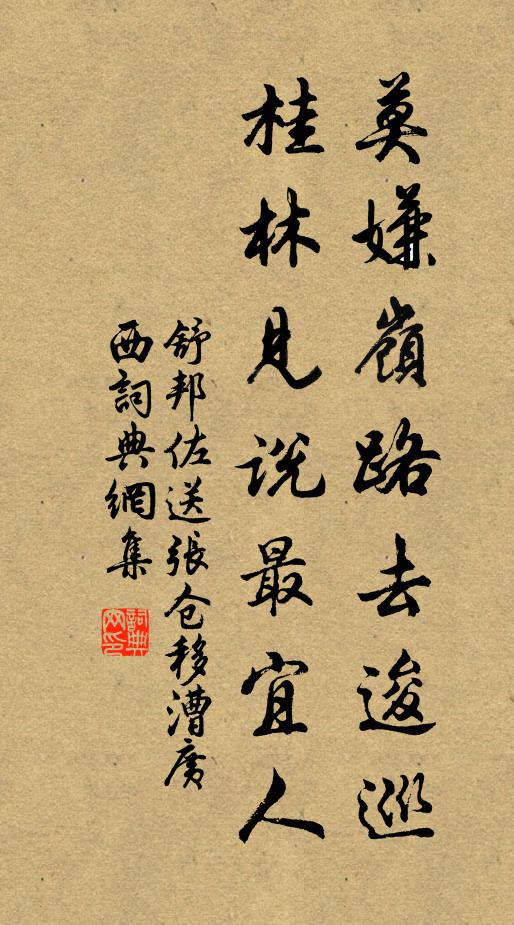 莫嫌嶺路去逡巡
桂林見説最宜人
舒邦佐送張仓移漕廣
西詞典網集
詞典
网印